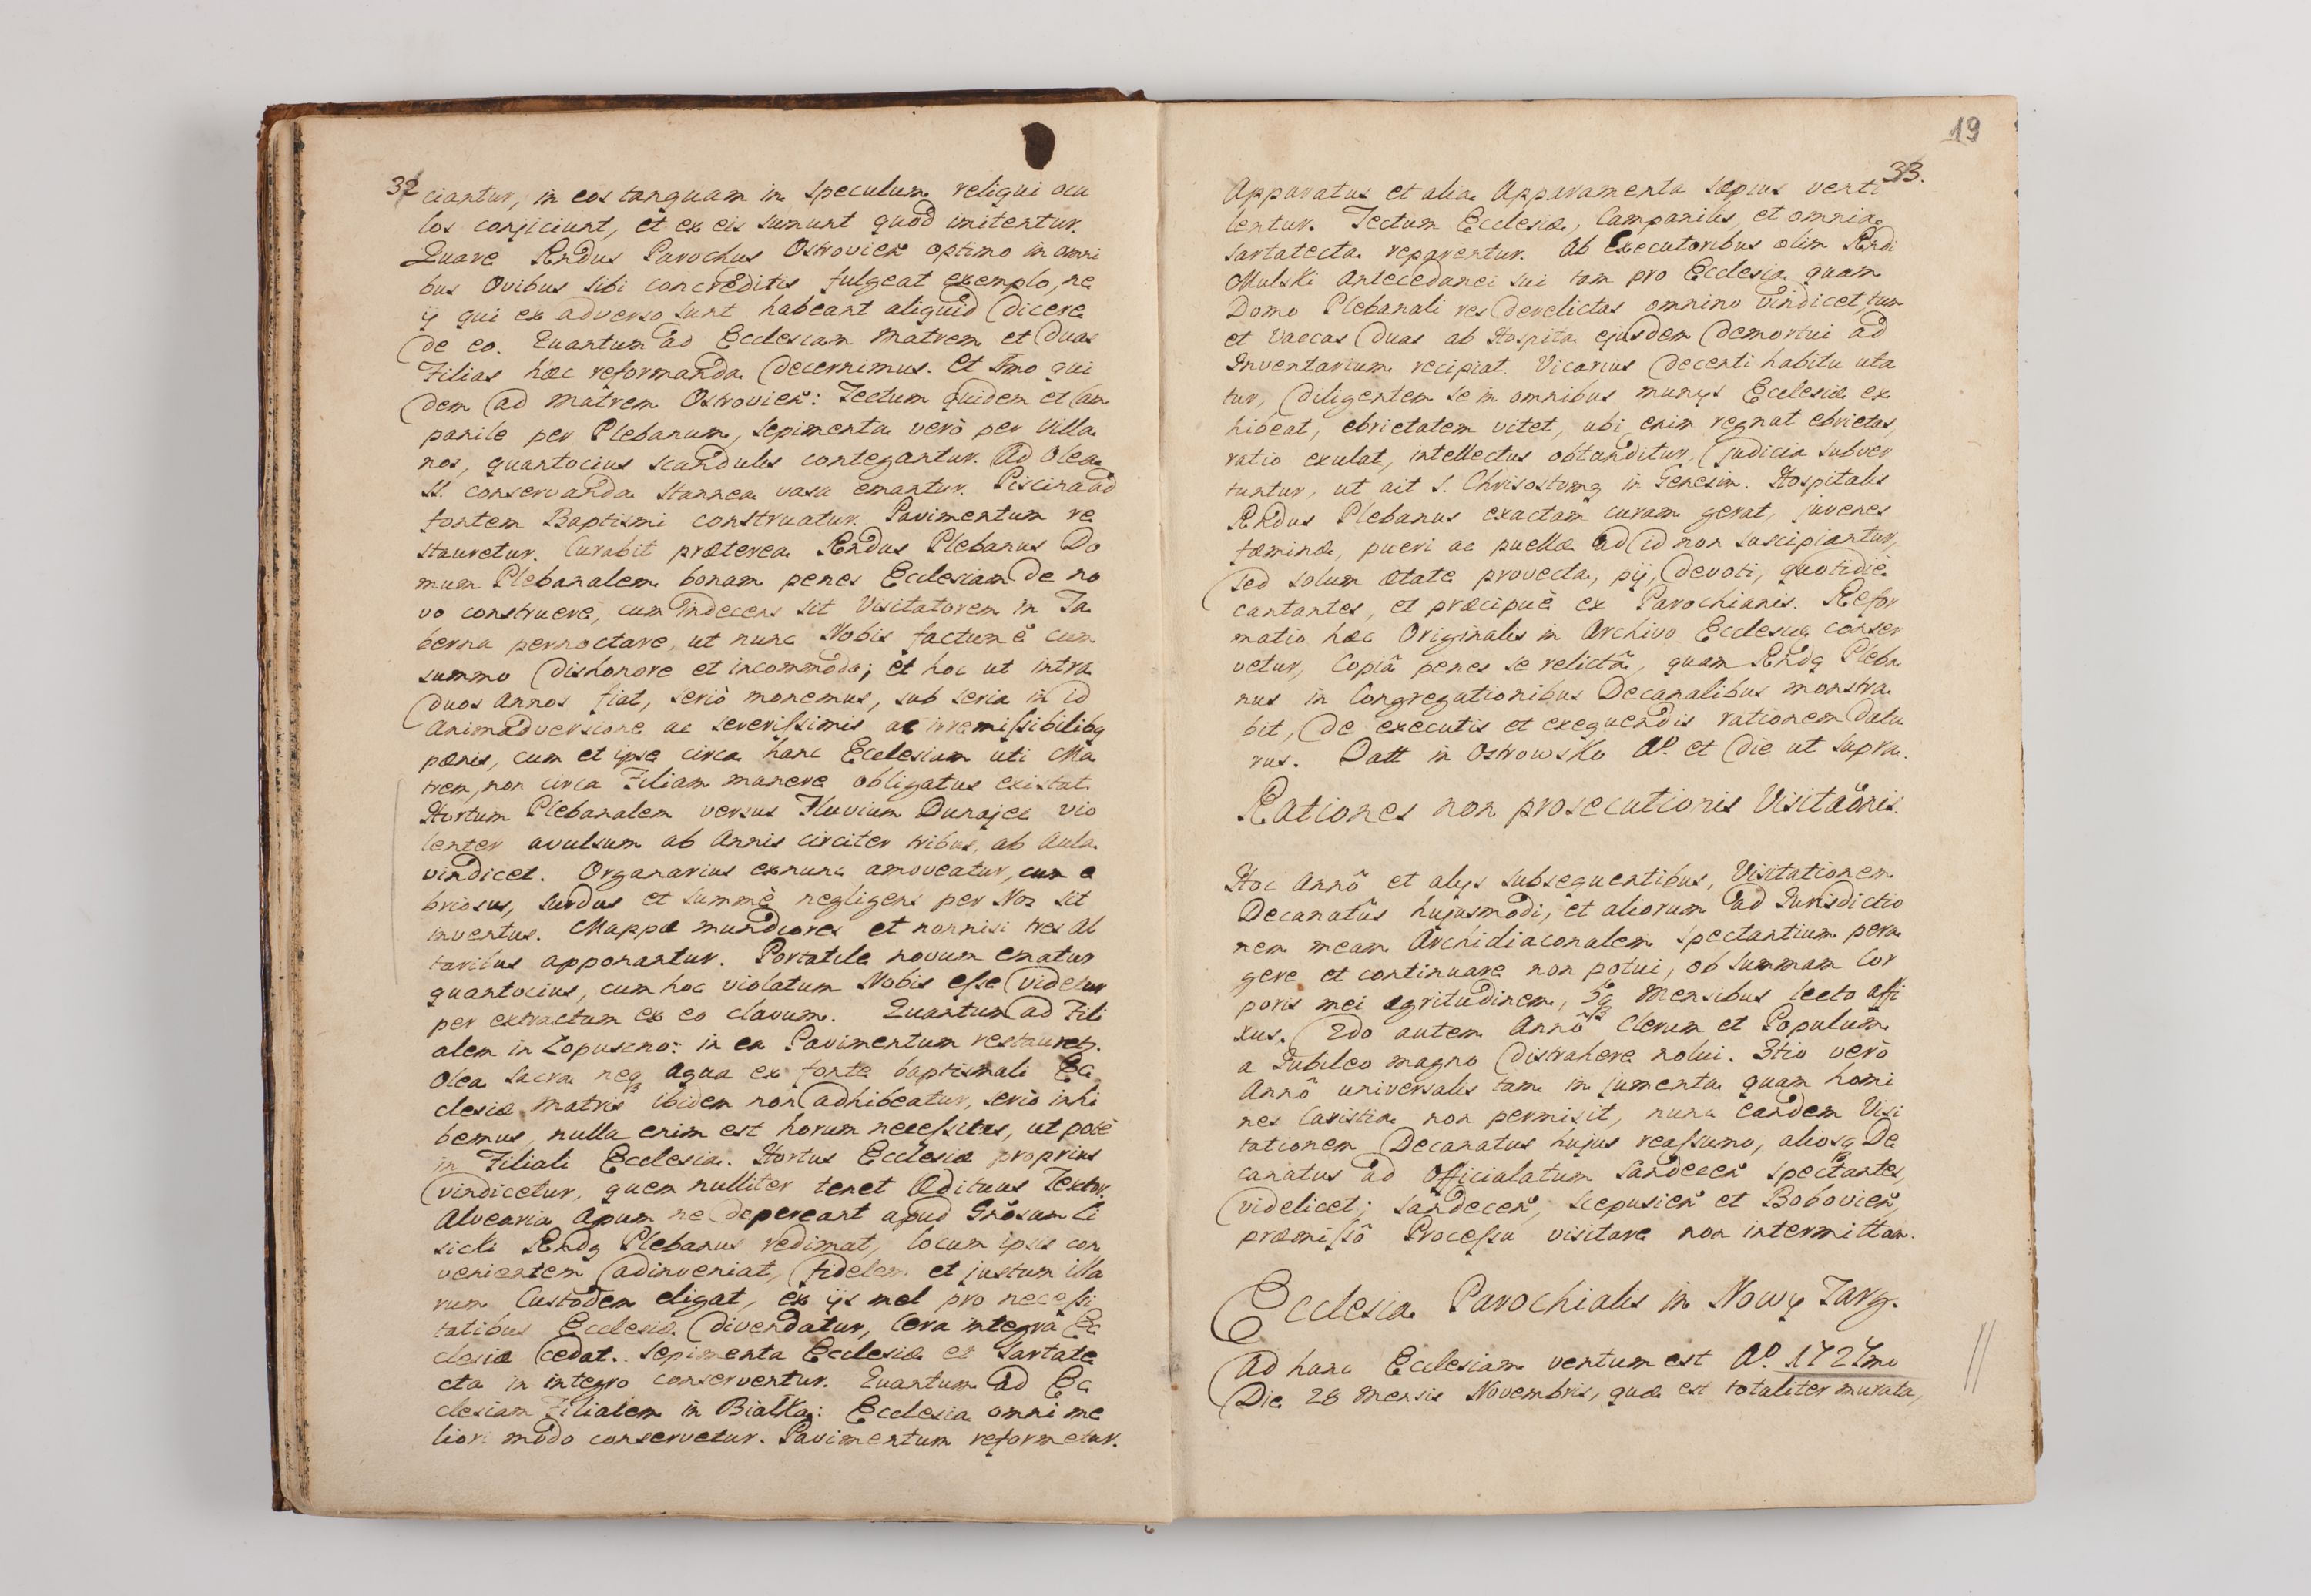 32
ciantur, in eos tanquam in speculum reliqui ocu
los conjiciunt, et ex eis sumunt quod imitentur.
Quare Rndus Parochus Ostrovien optimo in omni
bus Ovibus sibi concreditis fulgeat exemplo, ne
ij qui ex adverso sunt habeant aliquid dicere
de eo. Quantum ad Ecclesiam Matrem et duas
Filias hæc reformanda decernimus. Et 1mo qui
dem ad Matrem Ostrovien: Tectum quidem et Cam
panile per Plebanum, sepimenta verò per Villa
nos, quantocius scandulis contegantur. Ad Olea
SS. conservanda stannea vasa emantur. Piscina ad
fontem Baptismi construatur. Pavimentum re
stauretur. Curabit præterea Rndus Plebanus Do
mum Plebanalem bonam penes Ecclesiam de no
vo construere, cum indecens sit Visitatorem in Ta
berna pernoctare, ut nunc Nobis factum ẽ cum
summo dishonore et incommodo; et hoc ut intra
duos Annos fiat, seriò monemus, sub seria in id
animadversione ac severissimis ac irremissibilibq
pœnis, cum et ipse circa hanc Ecclesiam uti Ma
trem, non circa Filiam manere obligatus existat.
Hortum Plebanalem versus Fluvium Dunajec vio
lenter avulsum ab Annis circiter tribus, ab Aula
vindicet. Organarius exnunc amoveatur, cum e
briosus, surdus et summè negligens per Nos sit
inventus. Mappæ mundiores et nonnisi tres Al
taribus apponantur. Portatile novum ematur
quantocius, cum hoc violatum Nobis esse videtur
per extractum ex eo clavum. Quantum ad Fili
alem in Łopuszno: in ea Pavimentum restauretr.
Olea sacra neq aqua ex fonte baptismali Ec
clesiæ Matris ibidem non adhibeatur, seriò inhi
bemus, nulla enim est horum necessitas, ut potè
in Filiali Ecclesia. Hortus Ecclesiæ proprius
vindicetur, quem nulliter tenet Ædituus Textor.
Alvearia Apum ne depereant apud Gnõsum Li
sicki Rndq Plebanus redimat, locum ipsis con
venientem adinveniat, fidelem et justum illa
rum Custodem eligat, ex ijs mel pro necessi
tatibus Ecclesiæ divendatur, Cera integrâ Ec
clesiæ cedat. Sepimenta Ecclesiæ et Sartate
cta in integro conserventur. Quantum ad Ec
clesiam Filialem in Białka: Ecclesia omni me
liori modo conservetur. Pavimentum reformetur.
19
33.
Apparatus et alia Apparamenta sæpius venti
lentur. Tectum Ecclesiæ, Campanilis, et omnia
sartatecta reparentur. Ab Executoribus olim Rndi
Mulski Antecedanei sui tam pro Ecclesia quam
Domo Plebanali res derelictas omnino vindicet, tum
et vaccas duas ab Hospita ejusdem demortui ad
Inventarium recipiat. Vicarius decenti habitu uta
tur, diligentem se in omnibus munijs Ecclesiæ ex
hibeat, ebrietatem vitet, ubi enim regnat ebrietas,
ratio exulat, intellectus obtunditur, judicia subver
tuntur, ut ait S. Chrisostomq in Genesim. Hospitalis
Rndus Plebanus exactam curam gerat, juvenes
fæminæ, pueri ac puellæ ad id non suscipiantur,
sed solum ætate provecta, pij, devoti, quotidiè
cantantes, et præcipuè ex Parochianis. Refor
matio hæc Originalis in Archivo Ecclesiæ conser
vetur, Copiâ penes se relictâ, quam Rndq Pleba
nus in Congregationibus Decanalibus monstra
bit, de executis et exequendis rationem datu
rus. Datt in Ostrowsko Ao. et die ut supra.
Rationes non prosecutionis Visitaõnis.
Hoc Annô et alijs subsequentibus, Visitationem
Decanatûs hujusmodi, et aliorum ad Jurisdictio
nem meam Archidiaconalem spectantium pera
gere et continuare non potui, ob summam Cor
poris mei ægritudinem, 5q Mensibus lecto affi
xus. 2do autem Annô Clerum et Populum
a Jubileo magno distrahere nolui. 3tio verò
Annô universalis tam in jumenta quam homi
nes Caristia non permisit, nunc eandem Visi
tationem Decanatus hujus reassumo, aliosq De
canatus ad Officialatum Sandecen spectantes,
videlicet; Sandecen, Scepusien et Bobovien,
præmissô Processu visitare non intermittam.
Ecclesia Parochialis in Nowy Targ.
Ad hanc Ecclesiam ventum est Ao. 1727mo
Die 28 Mensis Novembris, quæ est totaliter murata,